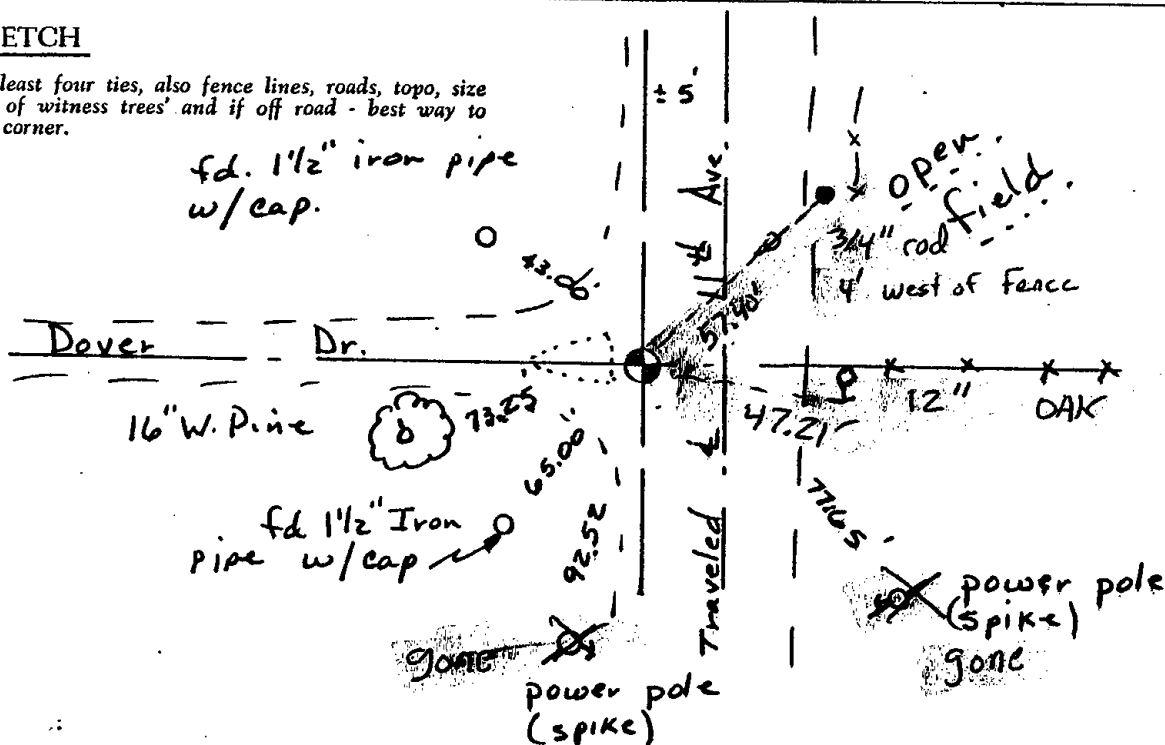 ETCH
least four ties, also fence lines, roads, topo, size
of witness trees' and if off road - best way to
corner.
± 5'
fd. 1 1/2" iron pipe
w/cap.
11th Ave.
open
field
3/4" rod
4' west of Fence
57.40'
Dover Dr.
16" W. Pine
73.25
47.21
12"
OAK
65.00'
fd 1 1/2" Iron
pipe w/cap
92.52
77.65
Traveled ℄
power pole
(spike)
gone
gone
power pole
(spike)